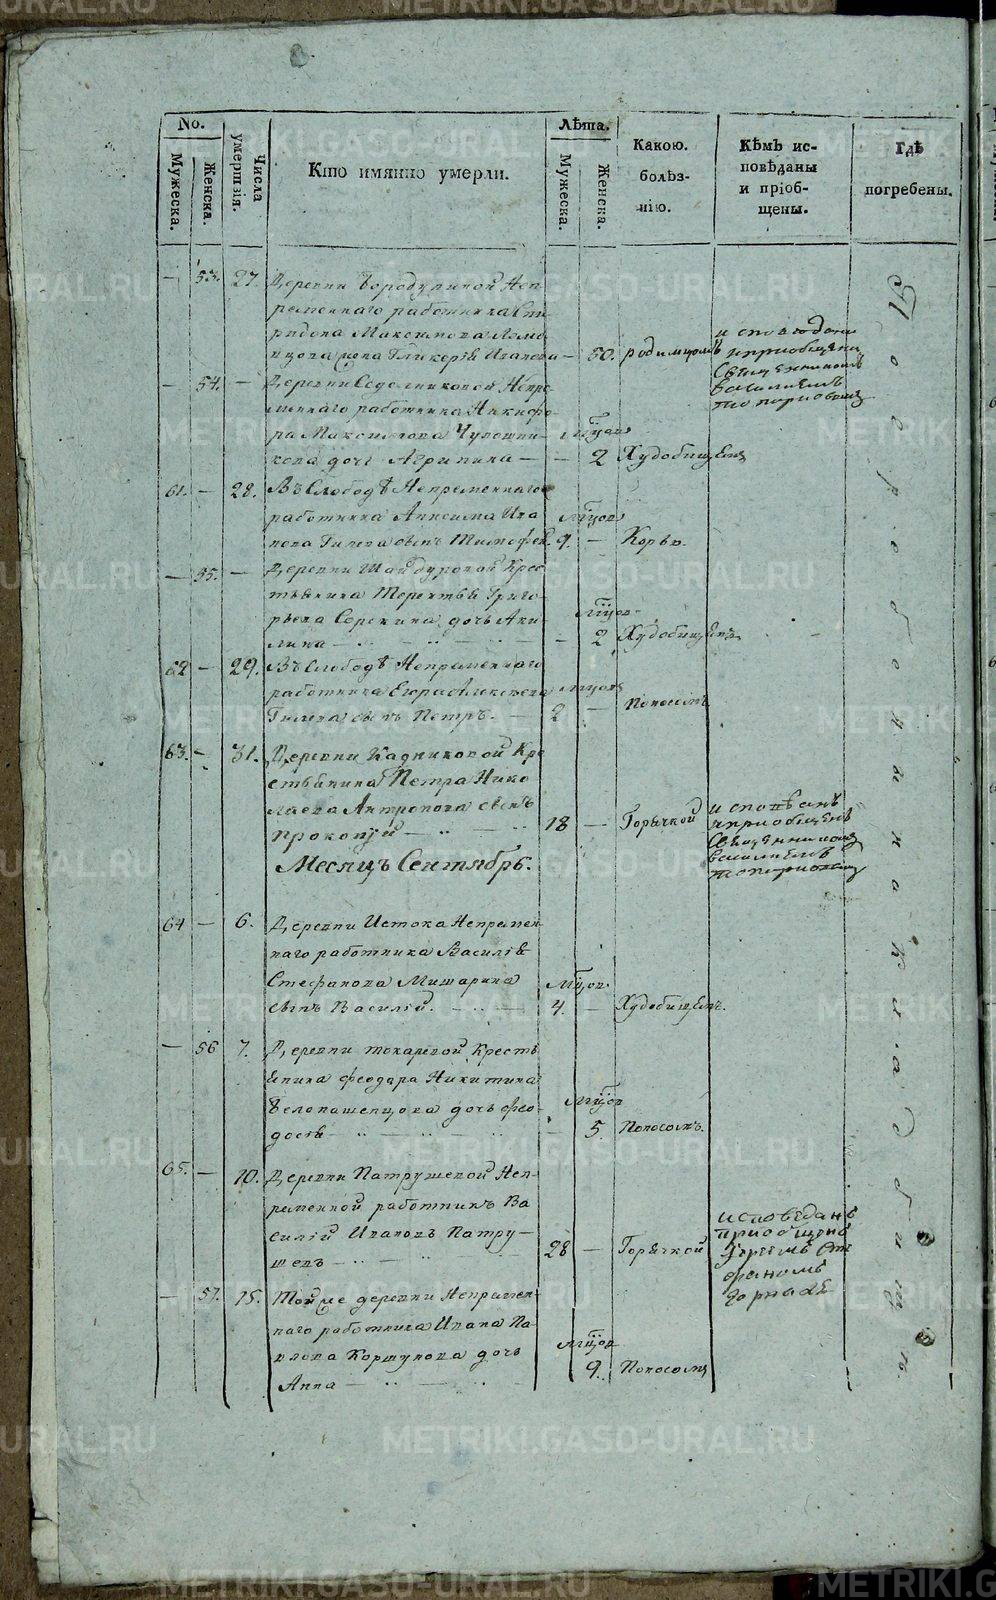 No.
Мужеска.
Женска.
Числа умершія.
Кто имянно умерли.
Лѣта.
Мужеска.
Женска.
Какою.
болѣз-
нію.
Кѣмъ ис-
повѣданы
и пріоб-
щены.
Гдѣ
погребены.
— 53. 27. Деревни Бородулиной Неп-
ременнаго работника Спи-
ридона Максимова
жена Гликерія Иванова — 50. родимцомъ
исповѣдана
и приобщена
Священникомъ
василіемъ
топорковымъ
— 54. — Деревни Седелниковой Непре-
меннаго работника Никифо-
ра Максимова Чупошни-
кова дочь Агрипина — — мѣсцов 2 Худобищемъ
61. — 28. Въ Слободѣ Непременнаго
работника Анисима Ива
нова Гилева сынъ Тимофей. мѣсцов 9. — Корью.
— 55. — Деревни Шайдуровой Крес
тьянина Терентья Григо-
рьева Сорокина дочь Аки-
лина — — мѣсцов 2 Худобищемъ
62 — 29. Въ Слободѣ Непременнаго
работника Егора Алексѣева
Гилева сынъ Петръ. — мѣсцов 2 — Поносомъ
63. — 31. Деревни Кадниковой Кре
стьянина Петра Нико
лаева Антропова сынъ
Прокопій — 18 — Горячкой
исповѣданъ
и приобщенъ
Священникомъ
василіемъ
топорковымъ
Месяцъ Сентябрь.
64 — 6. Деревни Истока Непремен-
наго работника Василія
Стефанова Мишарина
сынъ Василій. — мѣсцов 4. — Худобищемъ.
— 56 7. Деревни токаревой Кресть
янина феодара Никитина
Белопашенцова дочь фео-
досія — — мѣсцов 5. Поносомъ.
65. — 10. Деревни Патрушевой Неп-
ременной работникъ Ва
силій Ивановъ Патру-
шевъ — 28 — Горячкой
исповѣданъ
приобщенъ
Іереемъ Сте
фаномъ
— 57. 15. Тойже деревни Непремен-
наго работника Ивана Па-
влова Коршунова дочь
Анна — мѣсцов 9. Поносомъ
Погребены на кладбищѣ.
METRIKI.GASO-URAL.RU